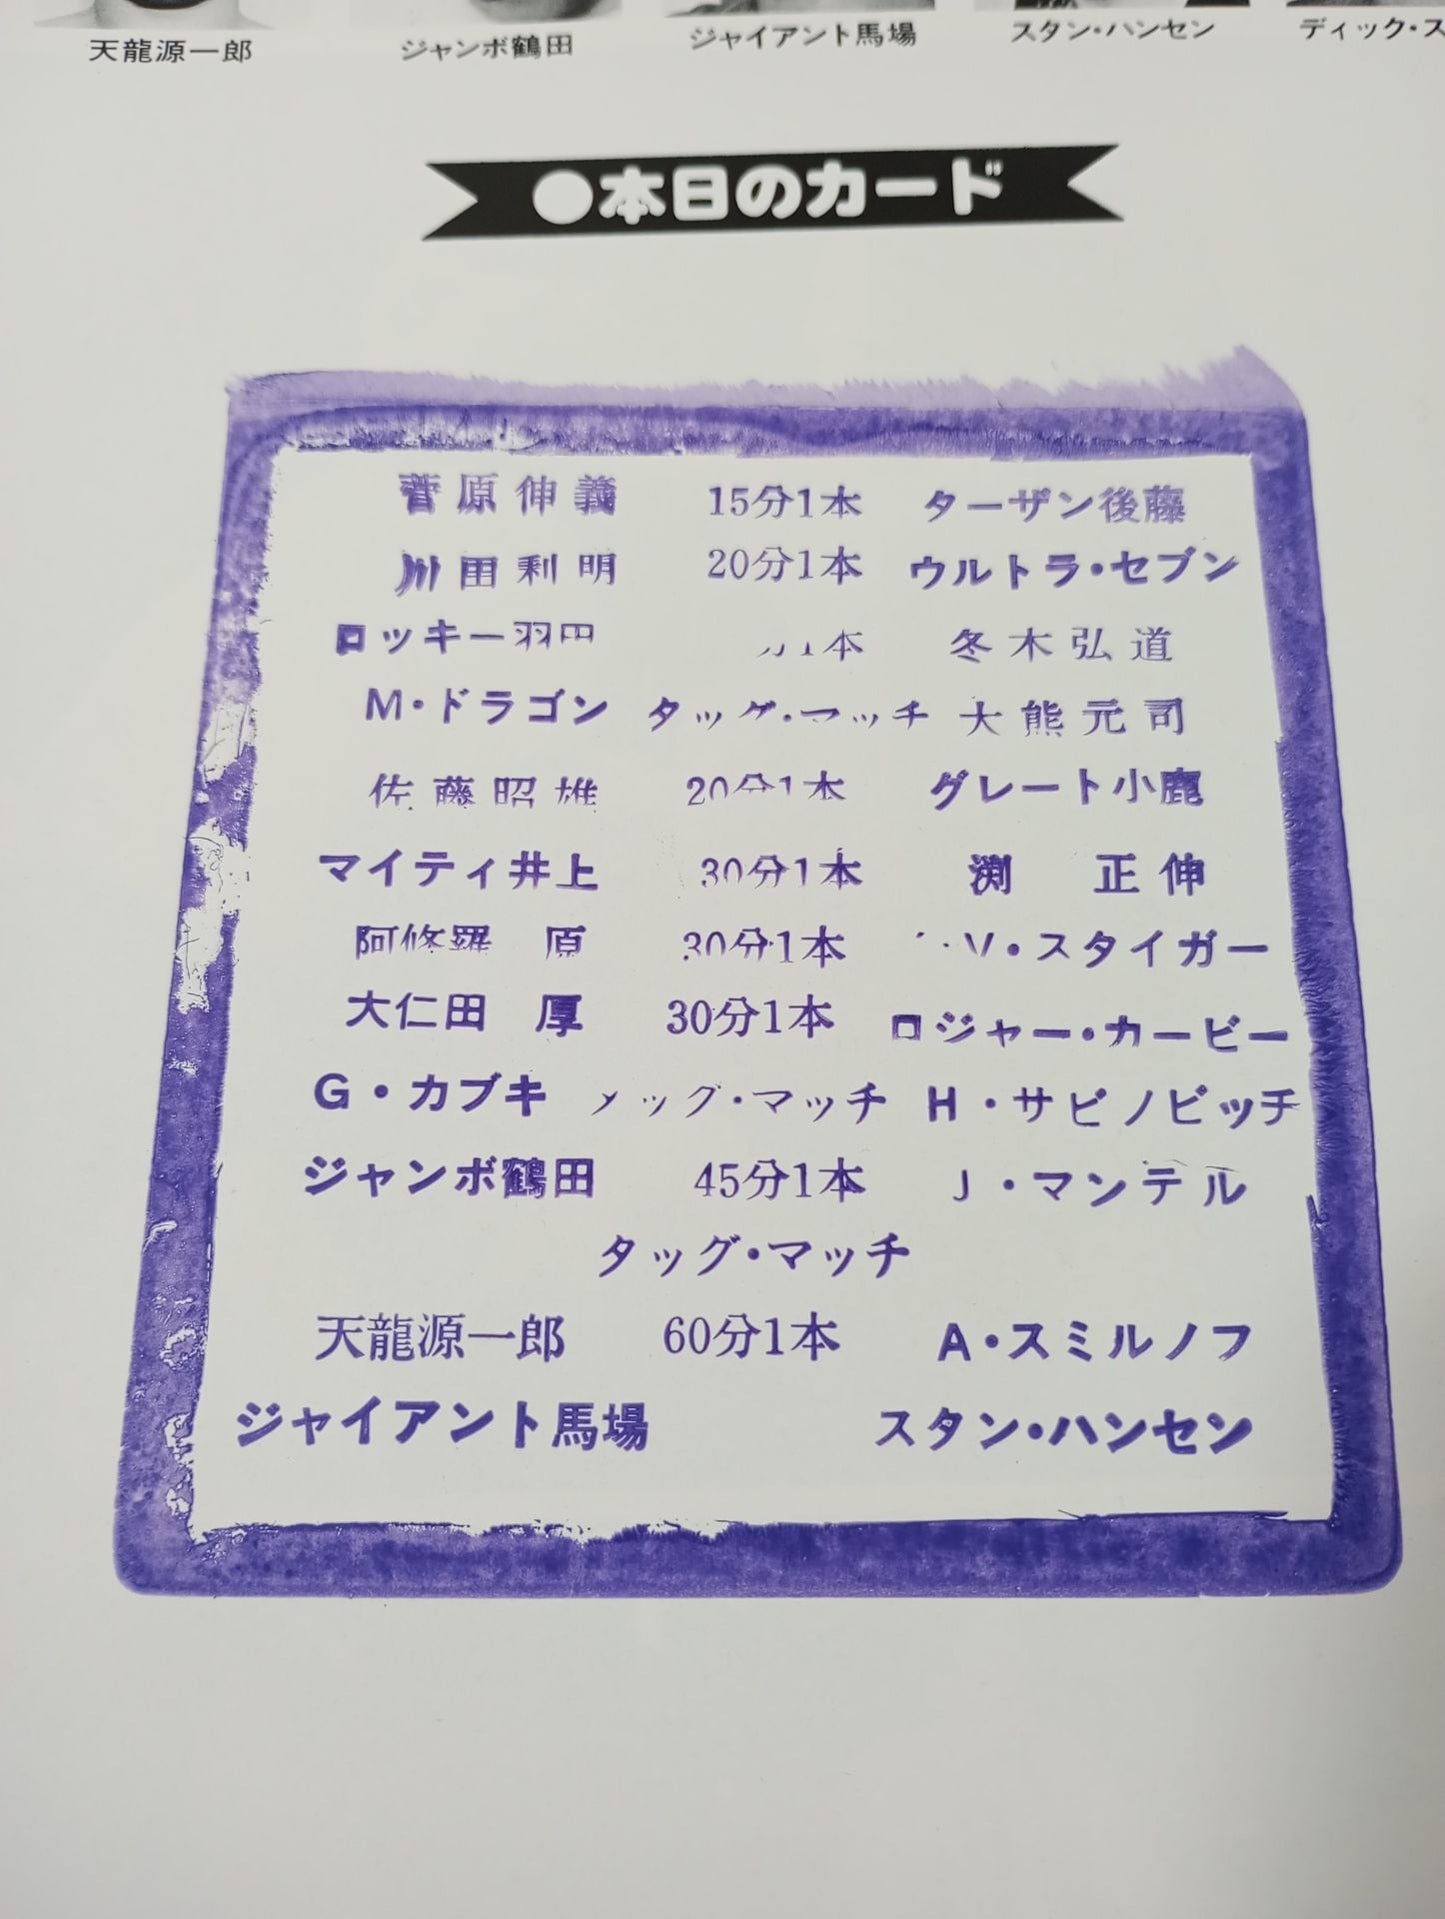 天龍源一郎 ジャンボ鶴田 ジャイアント馬場 スタン・ハンセン ディック・ス
●本日のカード
菅原伸義 15分1本 ターザン後藤
川田利明 20分1本 ウルトラ・セブン
ロッキー羽田 1本 冬木弘道
M・ドラゴン タッグ・マッチ 大熊元司
佐藤昭雄 20分1本 グレート小鹿
マイティ井上 30分1本 渕 正伸
阿修羅 原 30分1本 V・スタイガー
大仁田 厚 30分1本 ロジャー・カービー
G・カブキ タッグ・マッチ H・サビノビッチ
ジャンボ鶴田 45分1本 J・マンテル
タッグ・マッチ
天龍源一郎 60分1本 A・スミルノフ
ジャイアント馬場 スタン・ハンセン